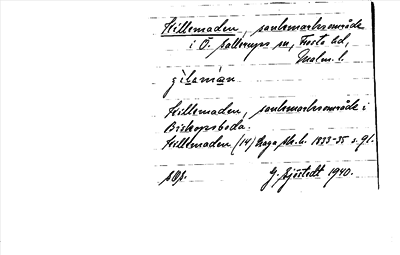 Killemaden, sankmarksområde
i Ö. Sallerups sn, Frosta hd,
Malm. l.
Killemaden, sankmarksområde i
Biskopsboda.
Killemaden (14) Laga sk. h. 1833-35 s. 91.
G. Sjöstedt 1940.